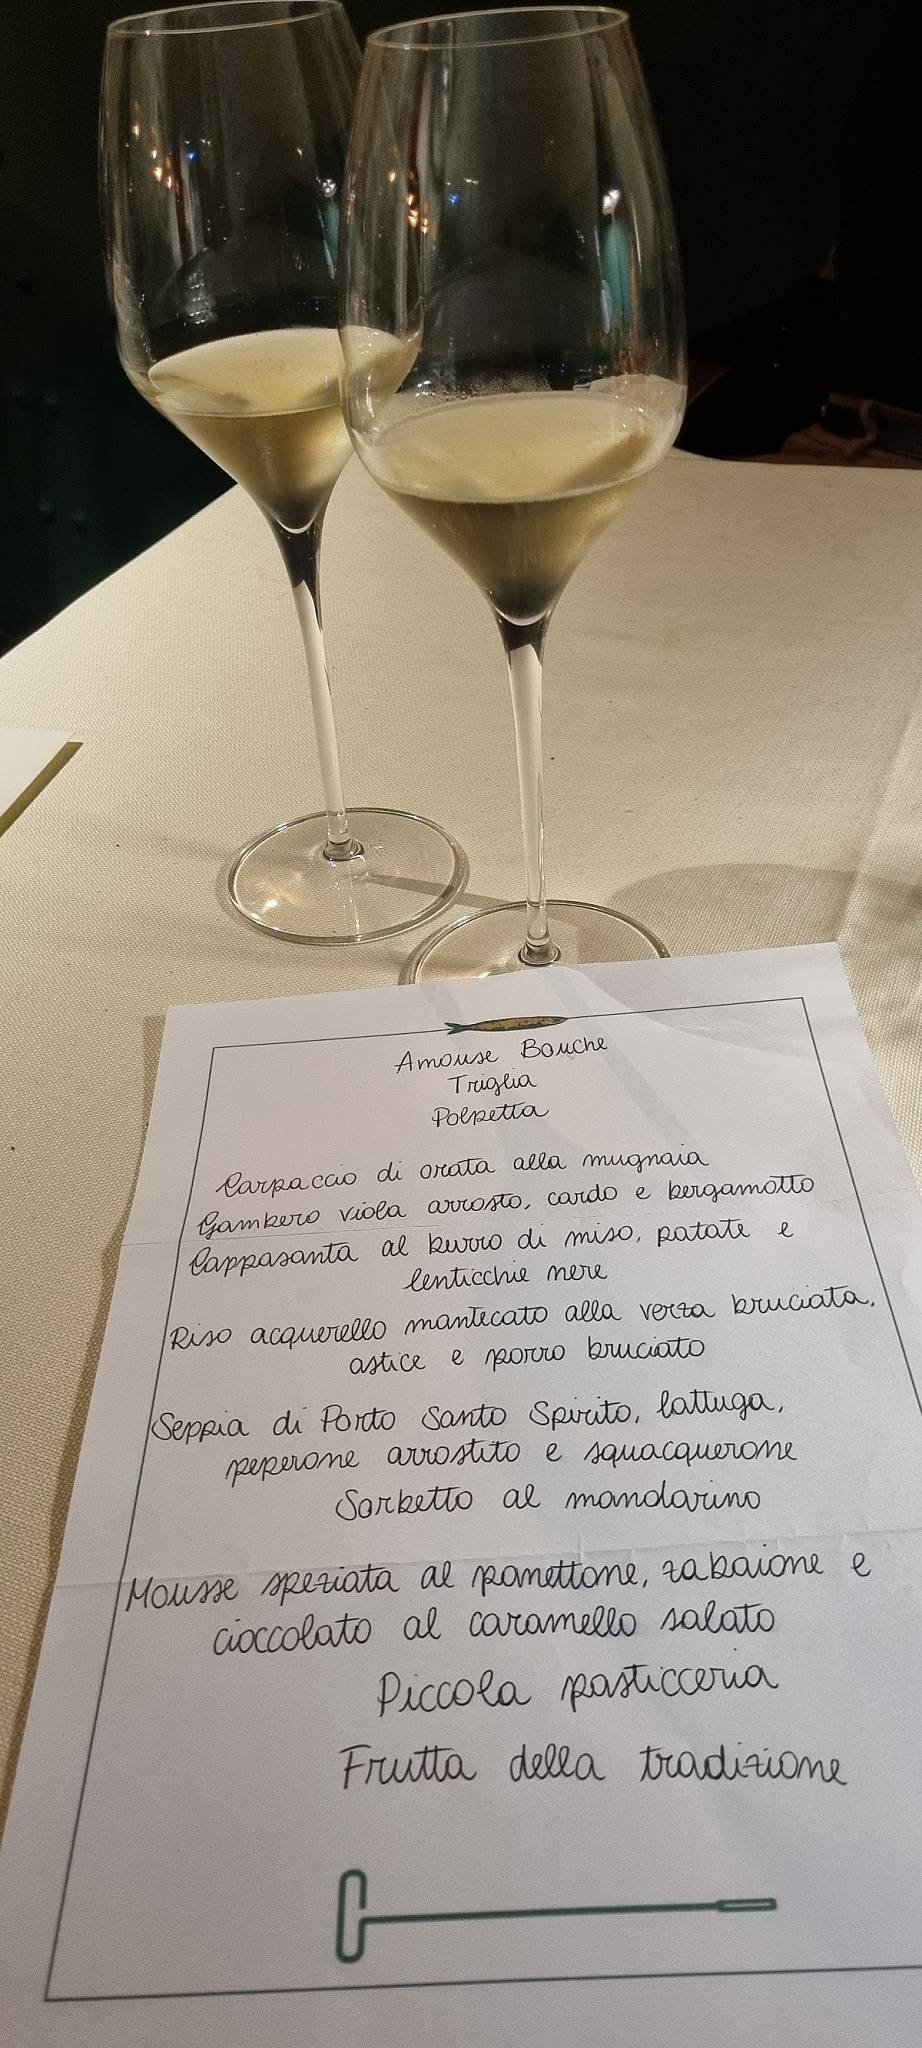 Amouse Bouche
Triglia
Polpetta
Carpaccio di orata alla mugnaia
Gambero viola arrosto, cardo e bergamotto
Cappasanta al burro di miso, patate e
lenticchie nere
Riso acquerello mantecato alla verza bruciata,
astice e porro bruciato
Seppia di Porto Santo Spirito, lattuga,
peperone arrostito e squacquerone
Sorbetto al mandarino
Mousse speziata al panettone, zabaione e
cioccolato al caramello salato
Piccola pasticceria
Frutta della tradizione